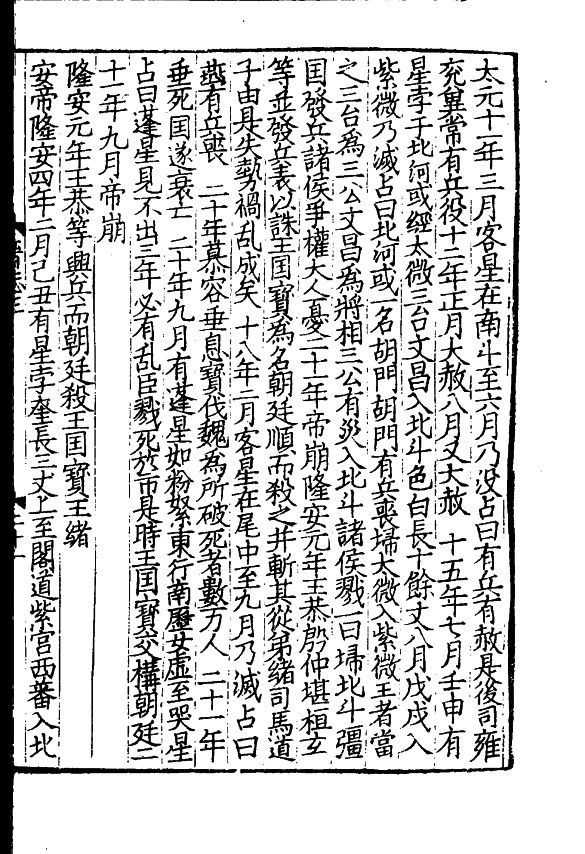 太元十一年三月客星在南斗至六月乃没占曰有兵有赦是後司雍
兖冀常有兵役十二年正月大赦八月又大赦　十五年七月壬申有
星孛于北河或經太微三台文昌入北斗色白長十餘丈八月戊戌入
紫微乃滅占曰北河或一名胡門胡門有兵喪掃太微入紫微王者當
之三台為三公文昌為將相三公有災入北斗諸侯戮一曰掃北斗彊
囯發兵諸侯爭權大人憂二十一年帝崩隆安元年王恭殷仲堪桓玄
等並發兵表以誅王囯寶為名朝廷順而殺之并斬其從弟緒司馬道
子由是失勢禍乱成矣　十八年二月客星在尾中至九月乃滅占曰
燕有兵喪　二十年慕容垂息寶伐魏為所破死者數万人　二十一年
垂死囯遂衰亡　二十年九月有蓬星如粉絮東行南歷女虚至哭星
占曰蓬星見不出三年必有乱臣戮死於市是時王囯寶交構朝廷二
十一年九月帝崩
隆安元年王恭等興兵而朝廷殺王囯寶王緒
安帝隆安四年二月己丑有星孛奎長三丈上至閣道紫宫西蕃入北